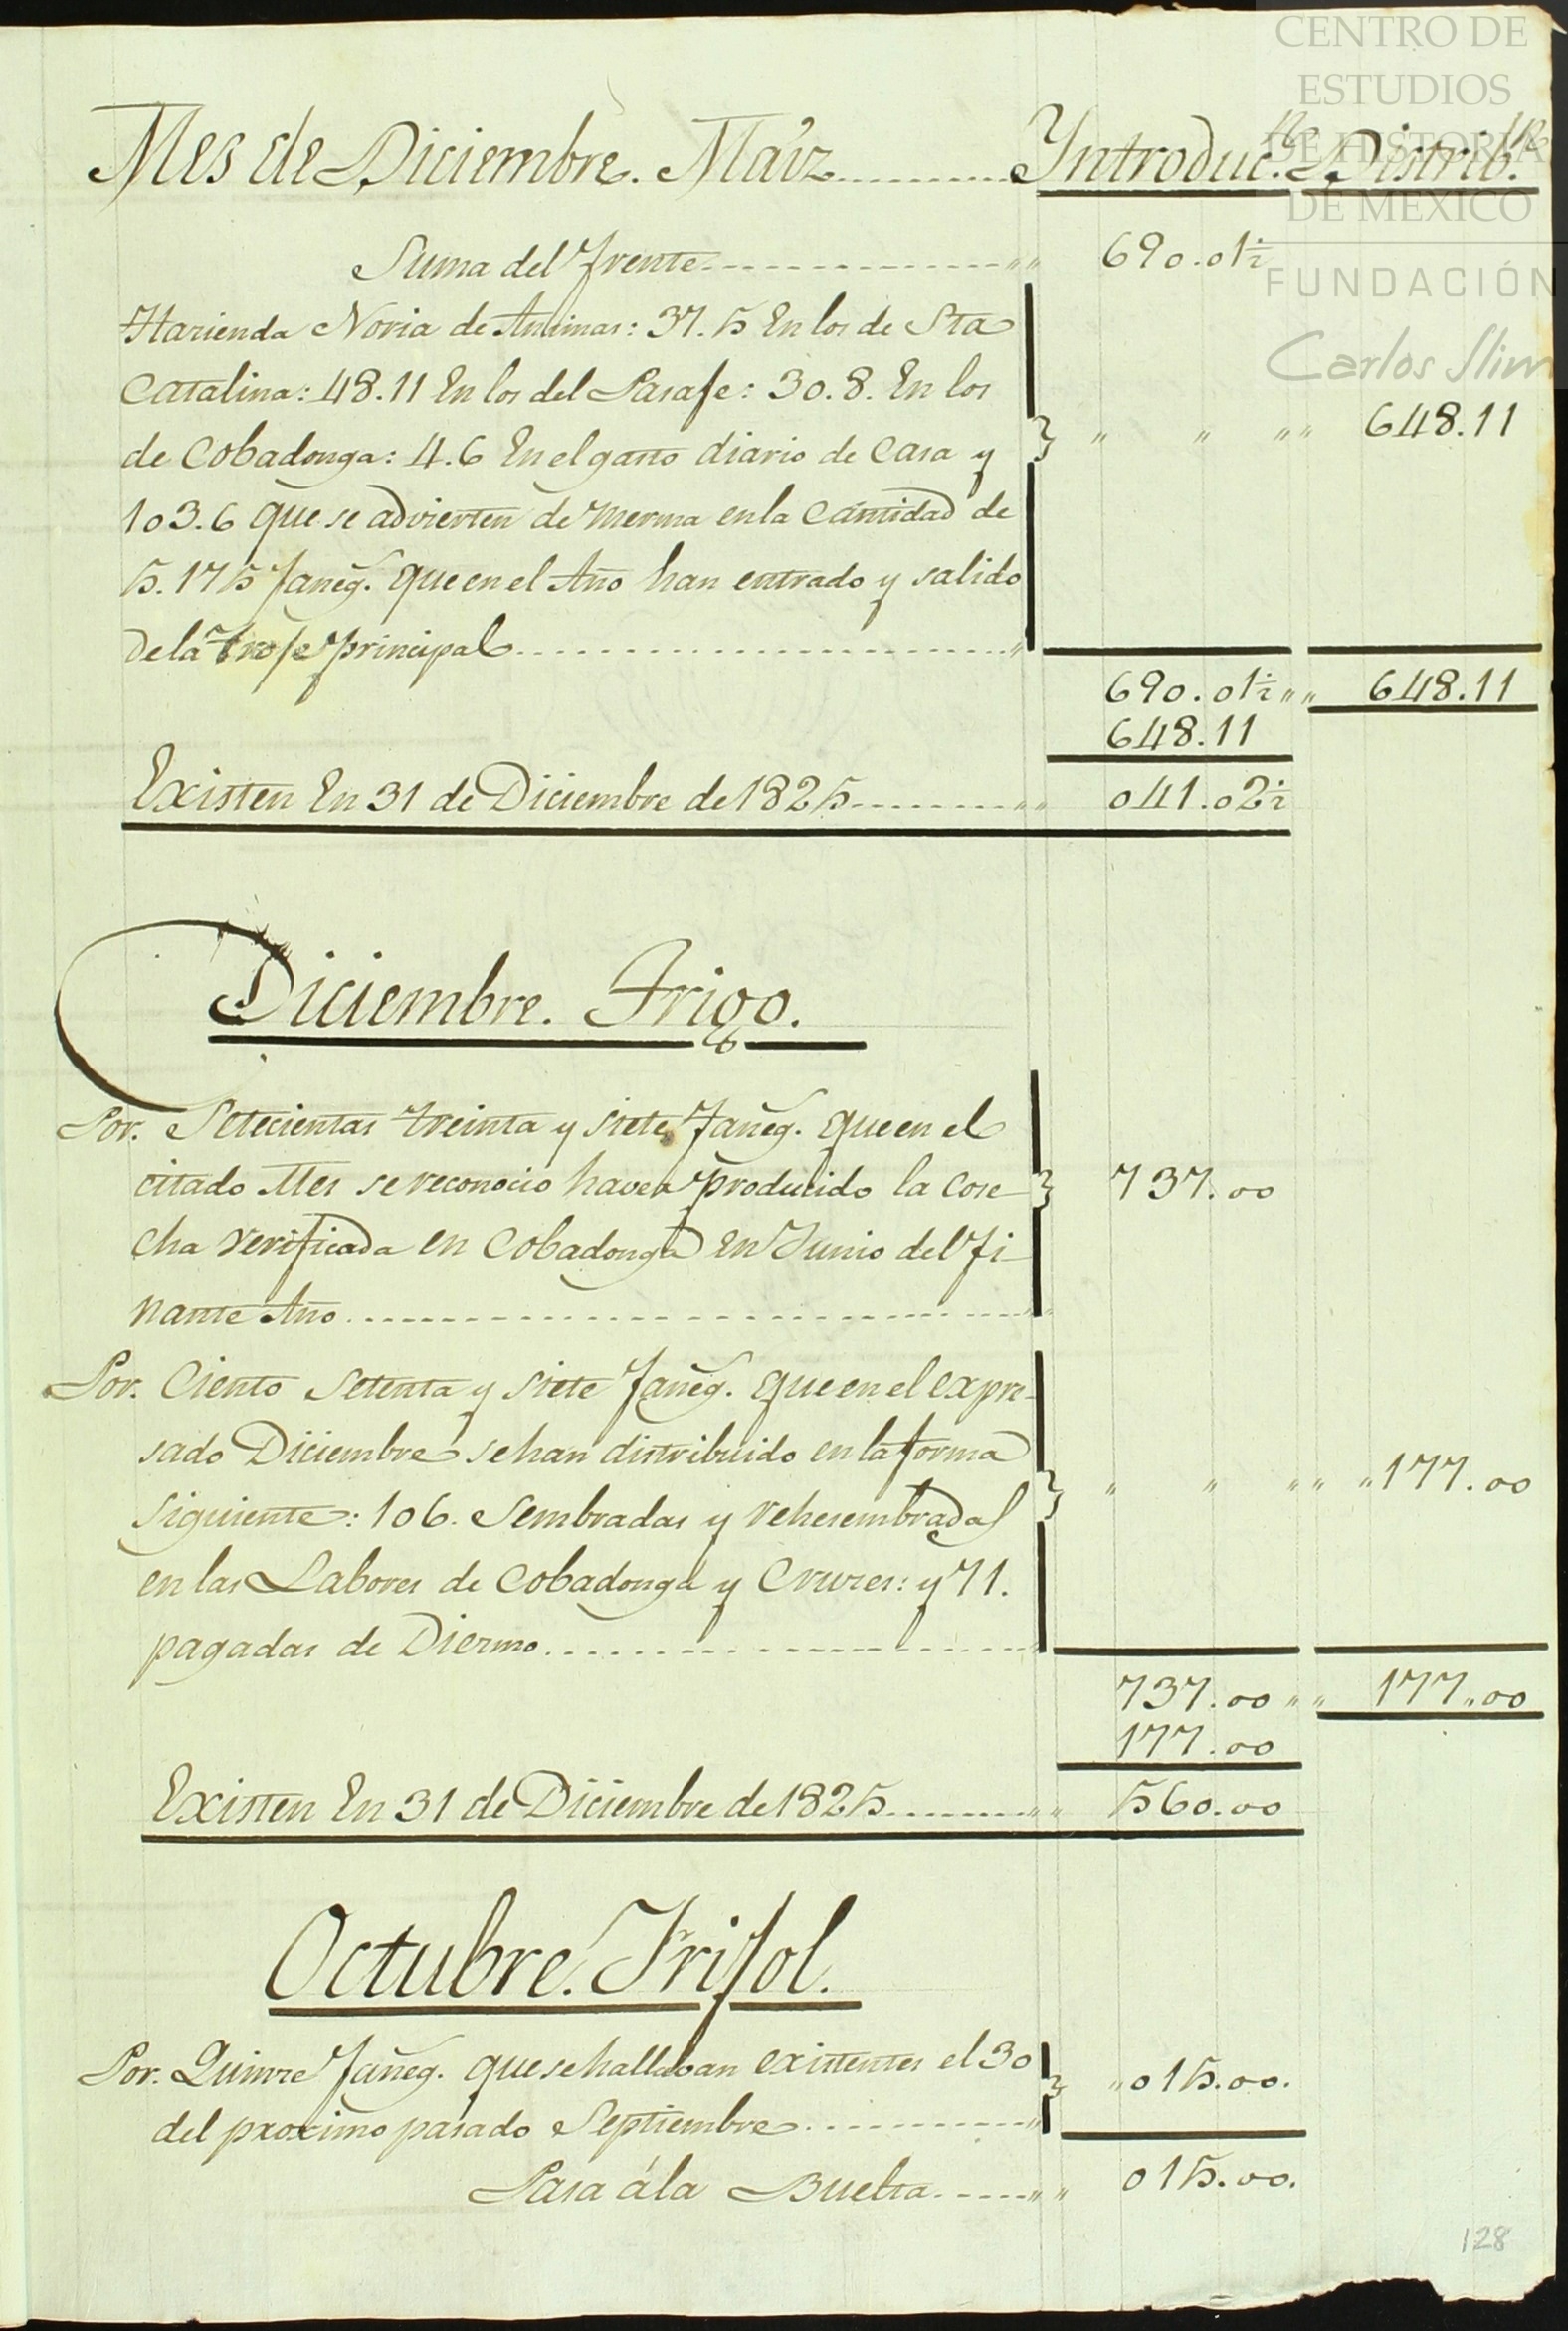 CENTRO DE
ESTUDIOS
DE HISTORIA
DE MEXICO
FUNDACIÓN
Carlos Slim
Mes de Diciembre. Maíz.......... Yntroduc.on Distrib.on
Suma del frente.................. 690.01½
Hazienda Noria de Animas: 37.5 En los de Sta
Catalina: 48.11 En los del Pasaje: 30.8. En los
de Cobadonga: 4.6 En el gasto diario de Casa y } " " "" 648.11
103.6 que se advierten de Merma en la Cantidad de
5.175 faneg. que en el Año han entrado y salido
de la Troje principal..............................
690.01½ "" 648.11
648.11
Existen En 31 de Diciembre de 1825.......... 041.02½
Diciembre. Trigo.
Por. Setecientas treinta y siete faneg. que en el
citado Mes se reconocio haver producido la Cose } 737.00
cha verificada en Cobadonga En Junio del fi-
nante Año.........................................
Por. Ciento setenta y siete faneg. que en el expre-
sado Diciembre se han distribuido en la forma
siguiente: 106. Sembradas y rehesembradas } " " "" "177.00
en las Labores de Cobadonga y Cruzes: y 71.
pagadas de Diezmo..............................
737.00 "" 177,,00
177.00
Existen En 31 de Diciembre de 1825.......... 560.00
Octubre. Frijol.
Por. Quinze fañeg. que se hallaban existentes el 30 } "015.00.
del proximo pasado Septiembre...............
Pasa á la Buelta....... 015.00.
128